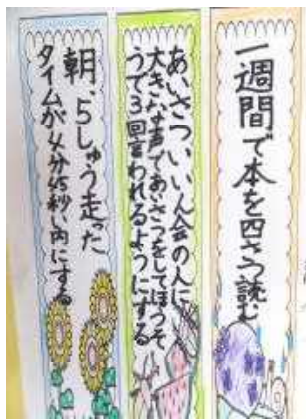 一週間で本を四さつ読む
あいさついいん会の人に
大きな声であいさつをしてほうそ
うで3回言われるようにする
朝、5しゅう走った
タイムが4分45秒い内にする